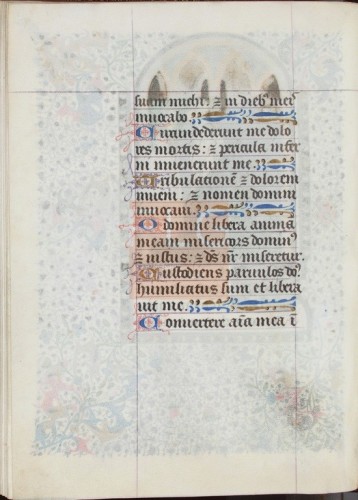 suam michi: ⁊ in dieb⁹ meis
inuocabo
Circundederunt me dolo
res mortis: ⁊ pericula infer
ni inuenerunt me.
Tribulationem ⁊ dolorem
inueni: ⁊ nomen domini
inuocaui.
O domine libera animā
meam misericors domin⁹
⁊ iustus: ⁊ ds̄ nr̄ miseretur.
Custodiens paruulos do⁹
humiliatus sum et libera
uit me.
Conuertere aīa mea ī